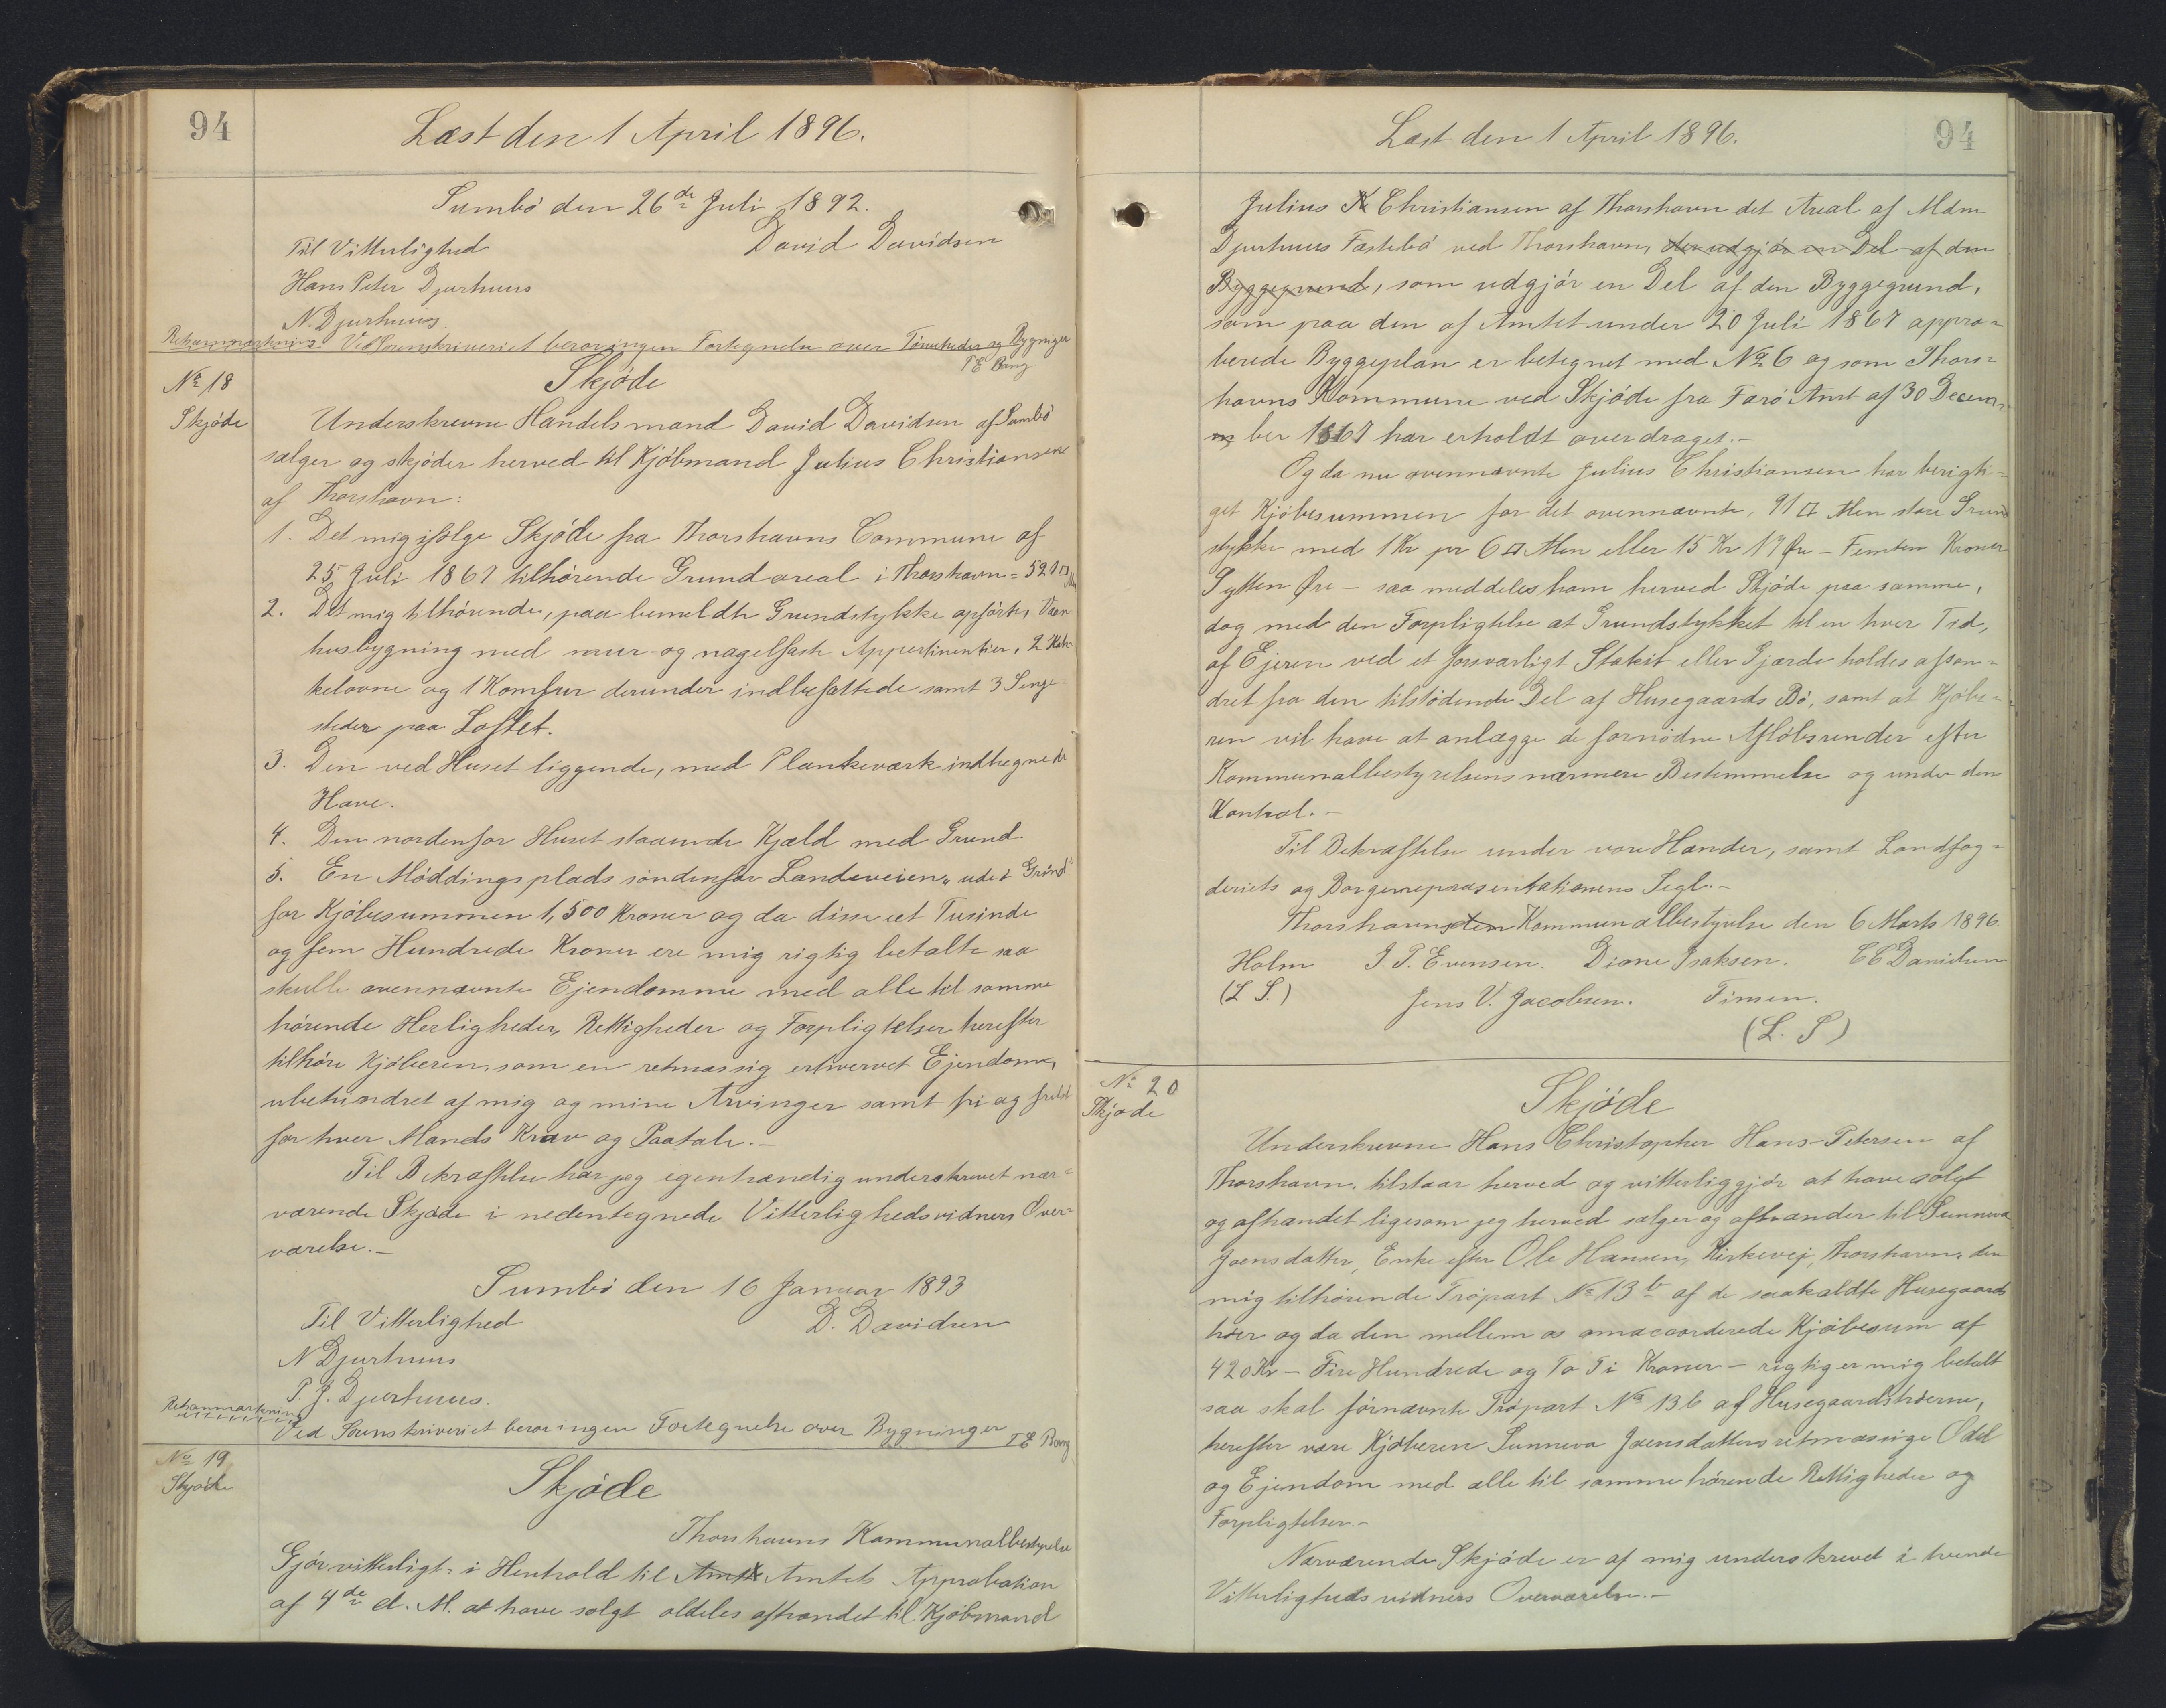 94
Læst den 1 April 1896.
Sumbö den 26de Juli 1892.
Til Vitterlighed
David Davidsen
Hans Peter Djurhuus
N. Djurhuus
Retsanmærkning Ved Sorenskriveriet beror ingen Fortegnelse over Tømmeder og Bygninger
T E Bang
No 18
Skjöde
Skjöde
Underskrevne Handelsmand David Davidsen af Sumbö
sælger og skjöder herved til Kjöbmand Julius Christiansen
af Thorshavn:
1. Det mig ifölge Skjöde fra Thorshavns Commune af
25 Juli 1867 tilhörende Grundareal i Thorshavn = 521 □ Aln
2. Det mig tilhörende, paa bemeldte Grundstykke opförte, Vaan
husbygning med mur- og nagelfaste Appertinentier, 2 Kak-
kelovne og 1 Komfur derunder indbefattede samt 3 Senge-
steder paa Loftet.
3. Den ved Huset liggende, med Plankeværk indhegnede
Have.
4. Den nordenfor Huset staaende Kjæld med Grund.
5. En Möddingsplads söndenfor Landeveien, uden Grund
for Kjöbesummen 1,500 Kroner og da disse eet Tusinde
og fem Hundrede Kroner ere mig rigtig betalte saa
skulle ovennævnte Ejendomme med alle til samme
hörende Herligheder, Rettigheder og Forpligtelser herefter
tilhöre Kjöberen, som en retmæssig erhvervet Ejendom,
ubehindret af mig og mine Arvinger samt fri og frelst
for hver Mands Krav og Paatale.-
Til Bekræftelse har jeg egenhændig underskrevet nær-
værende Skjöde i nedentegnede Vitterlighedsvidners Over-
værelse.-
Sumbö den 16 Januar 1893
Til Vitterlighed
D. Davidsen
N Djurhuus
P. J. Djurhuus.
Retsanmærkning
Ved Sorenskriveriet beror ingen Fortegnelse over Bygninger
T E Bang
No 19
Skjöde
Skjöde
Thorshavns Kommunalbestyrelse
Gjör vitterligt: i Henhold til Amts Amtets Approbation
af 4de d. M. at have solgt aldeles afhændet til Kjöbmand
94
Læst den 1 April 1896.
Julius K Christiansen af Thorshavn det Areal af Mdm
Djurhuus Fæstebö ved Thorshavn, der udgjör en Del af den
Byggegrund, som udgjör en Del af den Byggegrund,
som paa den af Amtet under 20 Juli 1867 appro-
berede Byggeplan er betegnet med No 6 og som Thors-
havns Kommune ved Skjöde fra Færö Amt af 30 Decem-
ber 1867 har erholdt overdraget.-
Og da nu ovennævnte Julius Christiansen har berigti-
get Kjöbesummen for det ovennævnte, 91 □ Alen store Grund
stykke med 1 Kr pr 6 □ Alen eller 15 Kr 17 Øre - Femten Kroner
Sytten Øre - saa meddeles ham herved Skjöde paa samme,
dog med den Forpligtelse at Grundstykket til en hver Tid,
af Ejeren ved et forsvarligt Stakit eller Gjærde holdes afson-
dret fra den tilstödende Del af Husegaards Bö, samt at Kjöbe-
ren vil have at anlægge de fornödne Aflöbsrender efter
Kommunalbestyrelsens nærmere Bestemmelse og under dens
Kontrol.-
Til Bekræftelse under vore Hænder, samt Landfog-
deriets og Borgerrepræsentationens Segl.-
Thorshavns den Kommunalbestyrelse den 6 Marts 1896
Holm J. P. Evensen. Dione Isaksen. C C Danielsen
(L S.) Jens V. Jacobsen. Timsen.
(L. S)
No 20
Skjøde
Skjöde
Underskrevne Hans Christopher Hans-Petersen af
Thorshavn, tilstaar herved og vitterliggjör at have solgt
og afhændet ligesom jeg herved sælger og afhænder til Sunneva
Joensdatter, Enke efter Ole Hansen, Kirkevej, Thorshavn, den
mig tilhörende Tröpart No 13b af de saakaldte Husegaards
höer og da den mellem os omaccorderede Kjöbesum af
420 Kr - Fire Hundrede og To Ti Kroner - rigtig er mig betalt
saa skal förnævnte Tröpart No 13b af Husegaardshöerne,
herefter være Kjöberen Sunneva Joensdatters retmæssige Odel
og Ejendom med alle til samme hörende Rettigheder og
Forpligtelser.-
Nærværende Skjöde er af mig underskrevet i tvende
Vitterligheds vidners Overværelse.-